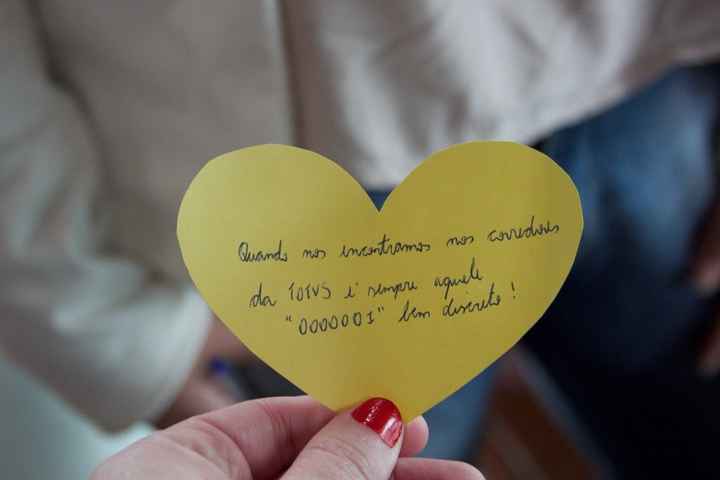 Quando nos encontramos nos corredores
da TOTVS é sempre aquele
"OOOOOOI" bem discreto!